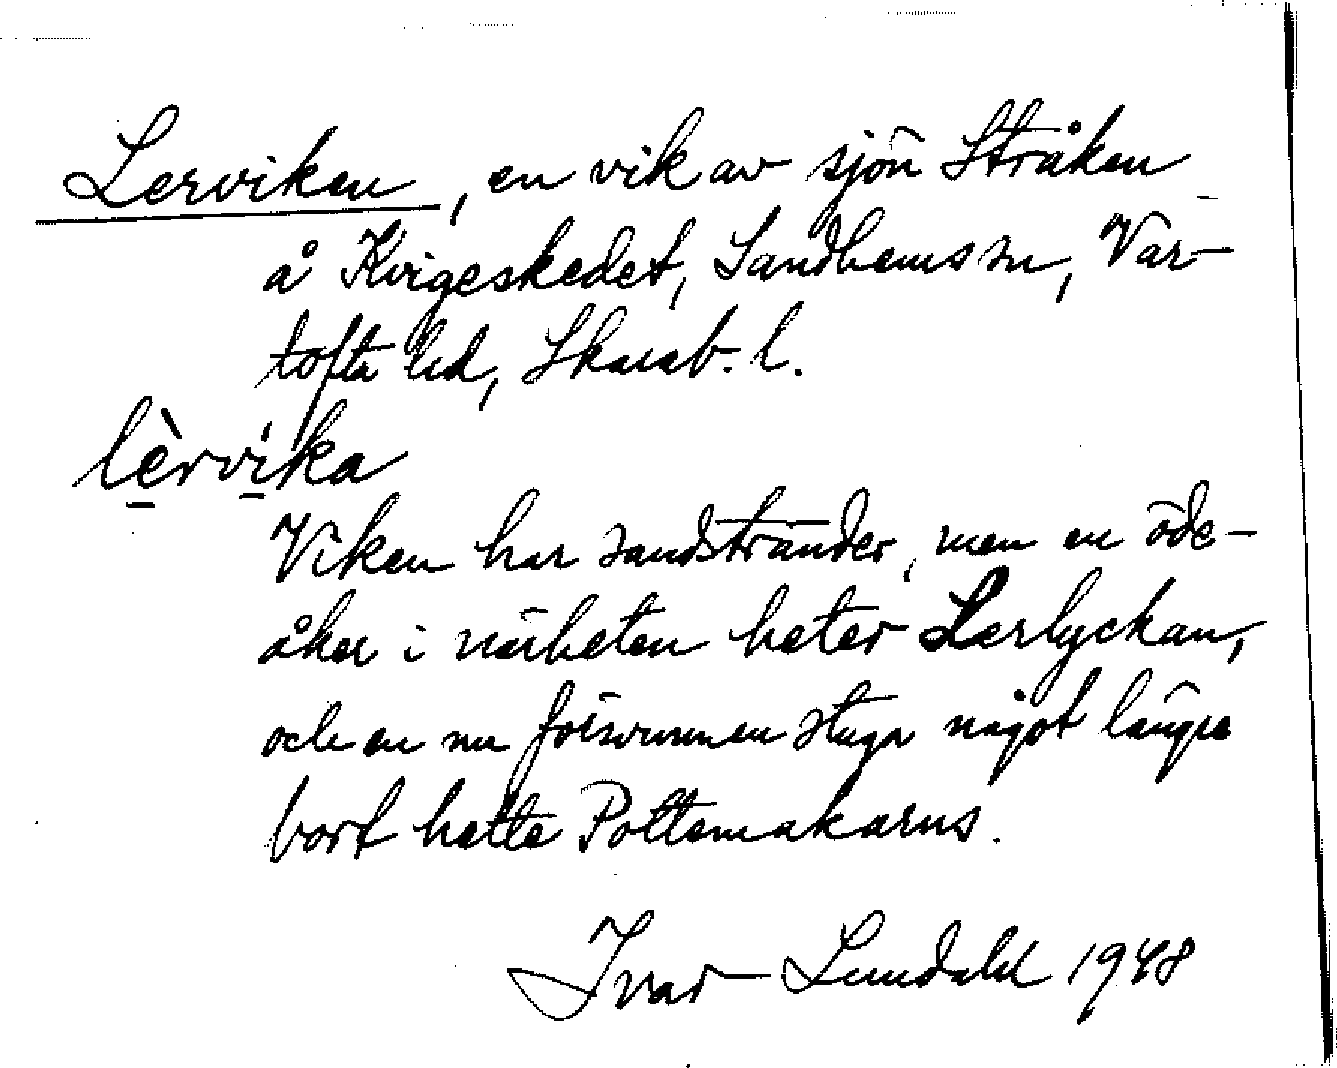 Lerviken, en vik av sjön Stråken
å Kvigeskedet, Sandhems sn, Var-
tofta hd, Skarab. l.
lèrvi̍ka
Viken har sandstränder, men en öde-
åker i närheten heter Lerlyckan,
och en nu försvunnen stuga något längre
bort hette Pottemakarns.
Ivar Lundahl 1948